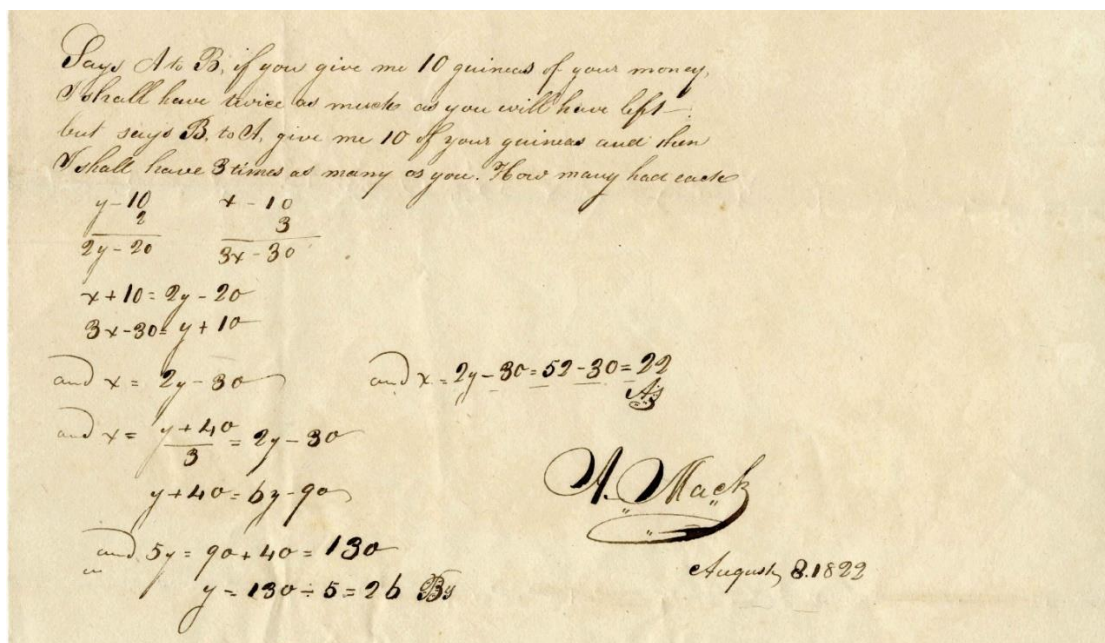 Says A to B, if you give me 10 guineas of your money,
I shall have twice as much as you will have left.
but says B, to A, give me 10 of your guineas and then
I shall have 3 times as many as you. How many had each
y - 10 x - 10
2 3
2y - 20 3x - 30
x + 10 = 2y - 20
3x - 30 = y + 10
and x = 2y - 30 and x = 2y - 30 = 52 - 30 = 22
A's
and x = y + 40 = 2y - 30
3
y + 40 = 6y - 90
and 5y = 90 + 40 = 130
y = 130 ÷ 5 = 26 B's
A. Mack
August, 8. 1822